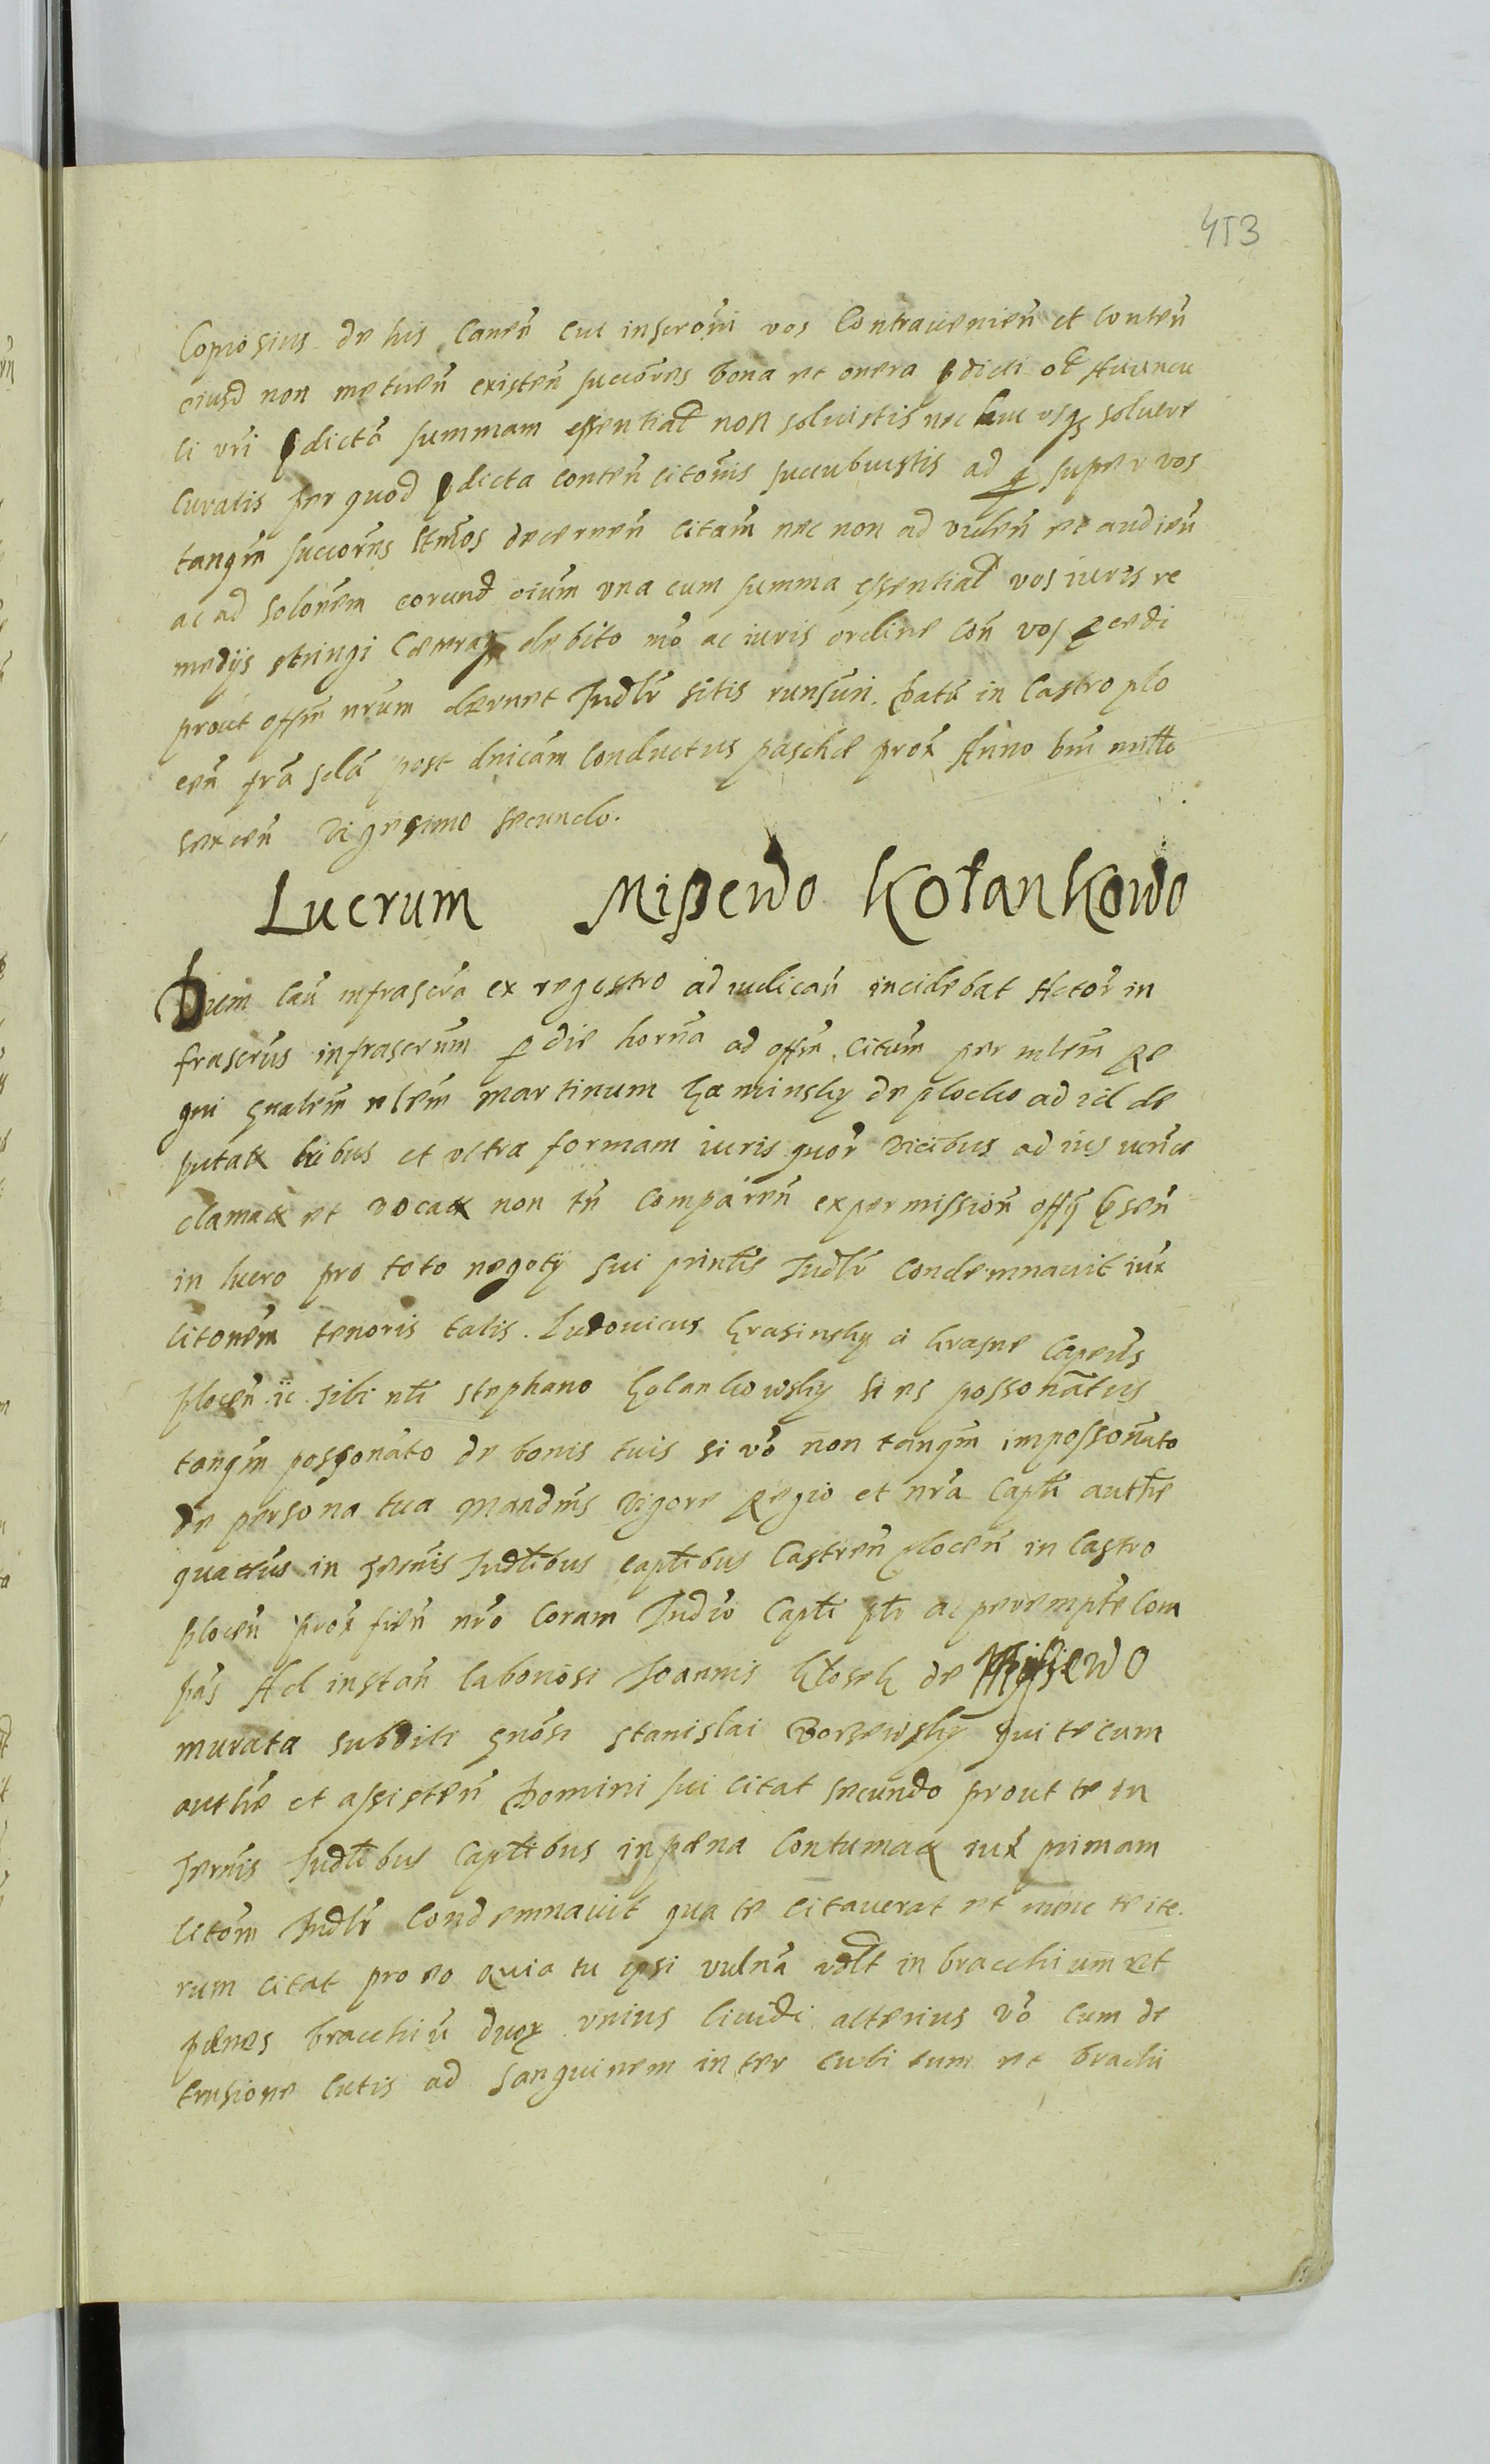 453
Copiosius de his Canen̄ cui inscrōni vos Contravenien̄ et conten̄
eiusd non metuen̄ existen̄ succōres bona et onera pdicti ol Auuncu
li vr̄i pdictā summam essential non solvistis nec huc usq solvere
Curatis per quod pdicta conten̄ citōnis succubuistis ad q super vos
tanqm̄ succōres ltmos decernen̄ citam̄ nec non ad viden̄ et audien̄
ac ad solōnem eorund oium̄ una cum summa essential vos iuris re
medijs stringi Cæteraq debito mō ac iuris ordine con̄ vos pcedi
prout offm̄ nrum decernet Judlr̄ sitis runsuri. Datū in Castro plo
cen̄ fr̄a scdā post dnicam̄ Conductus paschæ prox Anno Dni millo
sexcen̄ vigesimo secundo.
Lucrum Miszewo Kołankowo
Dum Cau infrascrā ex regestro ad iudican̄ incidebat Actor in
frascrūs infrascrūm p die hornā ad offm̄ citum̄ per mlem̄ Re
gni gnalem̄ nlem̄ Martinum Kaminsky de plocko ad id de
putat tribus et ultra formam iuris quor̄ vicibus ad ius vernæ
clamat et vocat non tn̄ comparen̄ ex permission̄ offy psen̄
in lucro pro toto negoty sui prinlis Judlr̄ Condemnavit iux
citōnem tenoris talis. Ludovicus Krasinsky a Krasne Capeus
plocen̄ ic. tibi nli Stephano Kolankowsky si es possonātus
tanqm̄ possonāto de bonis tuis si vō non tanqm̄ impossonāto
de persona tua Mandm̄s vigore Regio et nrā Capli authe
quattus in term̄is Judlibus caplibus Castren̄ plocen̄ in Castro
plocen̄ prox fien̄ nrō Coram Judio Capli plr ac perempte Com
pās Ad instan̄ laboriosi Joannis Klosek de Miszewo
murata subditi gnōsi Stanislai Borzewsky qui te cum
authe et assisten̄ Domini sui citat secundo prout te in
term̄is Judlibus Caplibus in pæna Contumax iux primam
citom̄ Judlr̄ Condemnavit qua te citaverat et nunc te ite.
rum citat pro eo quia tu ipsi vulnā in bracchium et
pænes bracchiū duor unius lividi alterius vō cum de
trusione cutis ad sanguinem inter cubitum et brachi